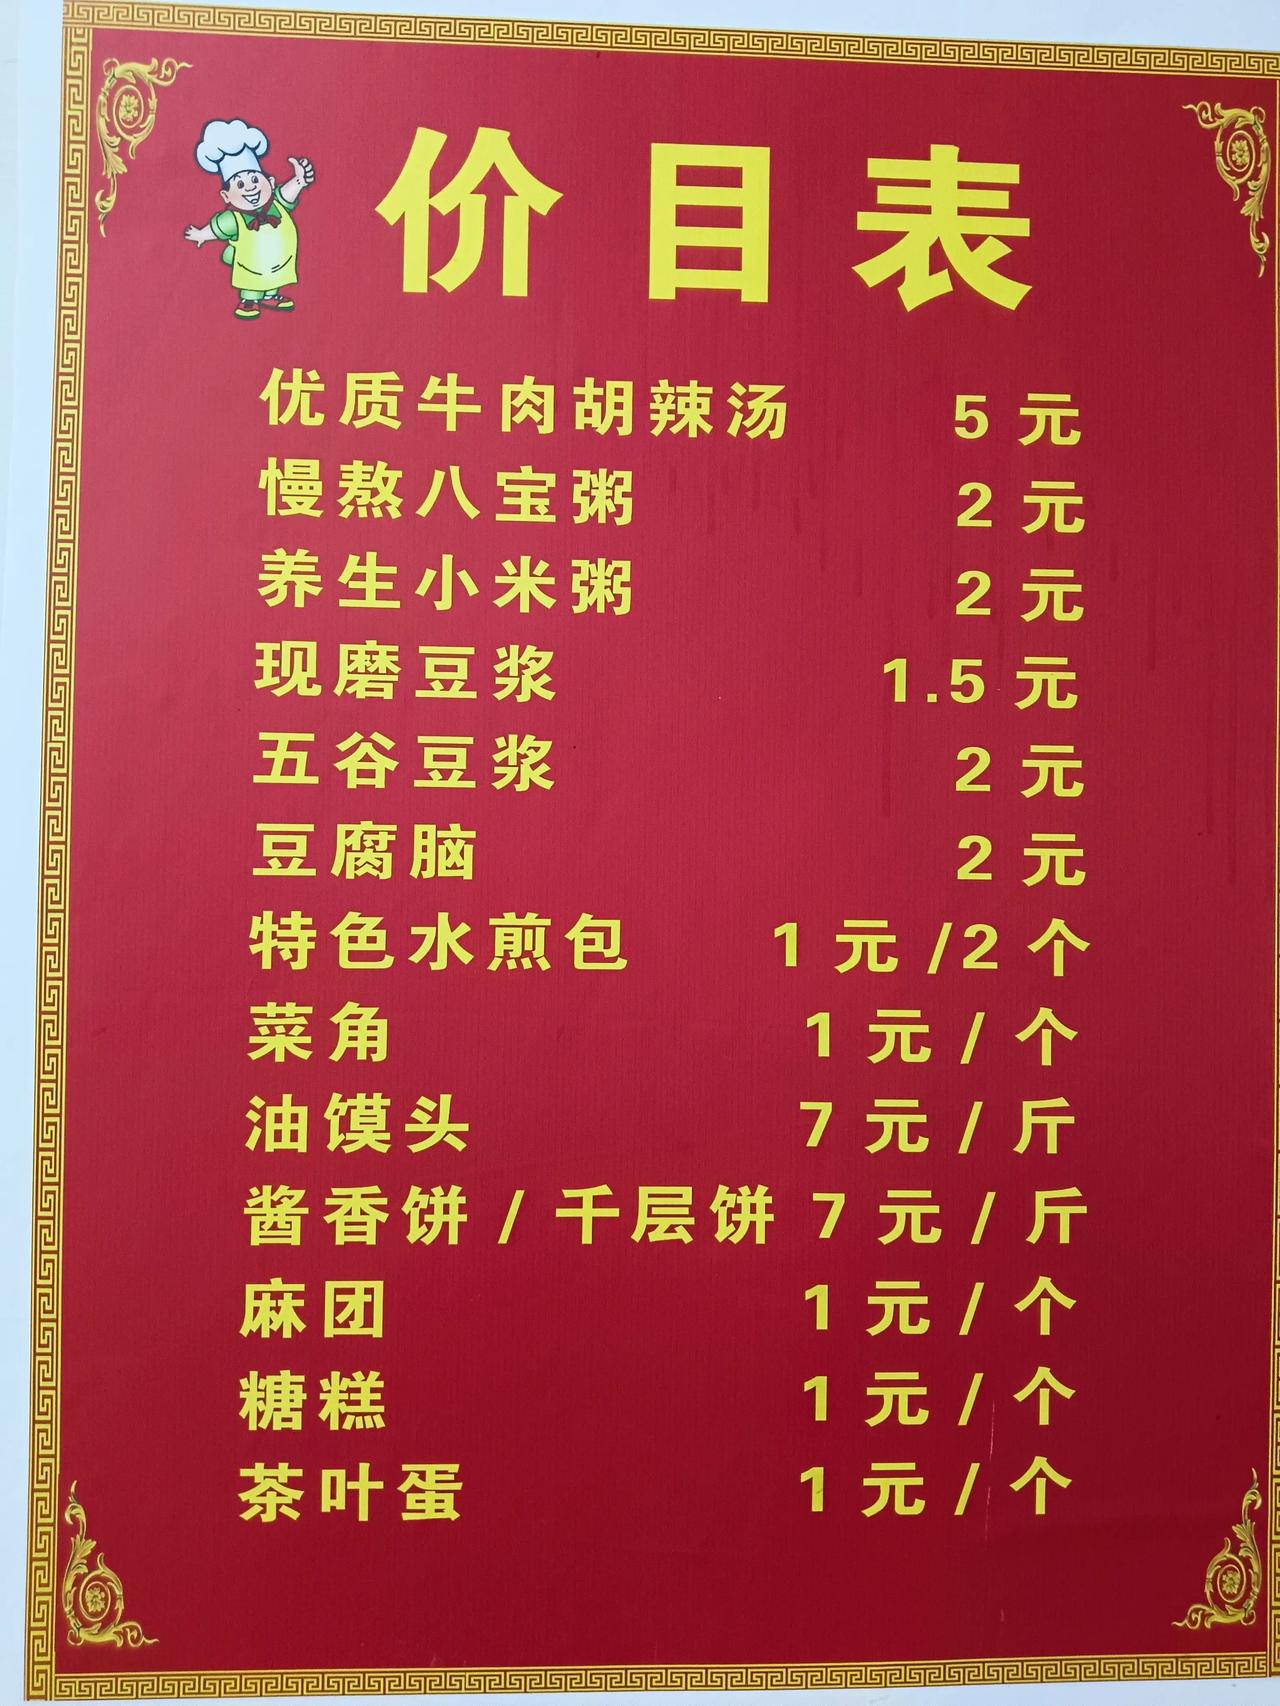 价目表
优质牛肉胡辣汤 5元
慢熬八宝粥 2元
养生小米粥 2元
现磨豆浆 1.5元
五谷豆浆 2元
豆腐脑 2元
特色水煎包 1元/2个
菜角 1元/个
油馍头 7元/斤
酱香饼/千层饼 7元/斤
麻团 1元/个
糖糕 1元/个
茶叶蛋 1元/个